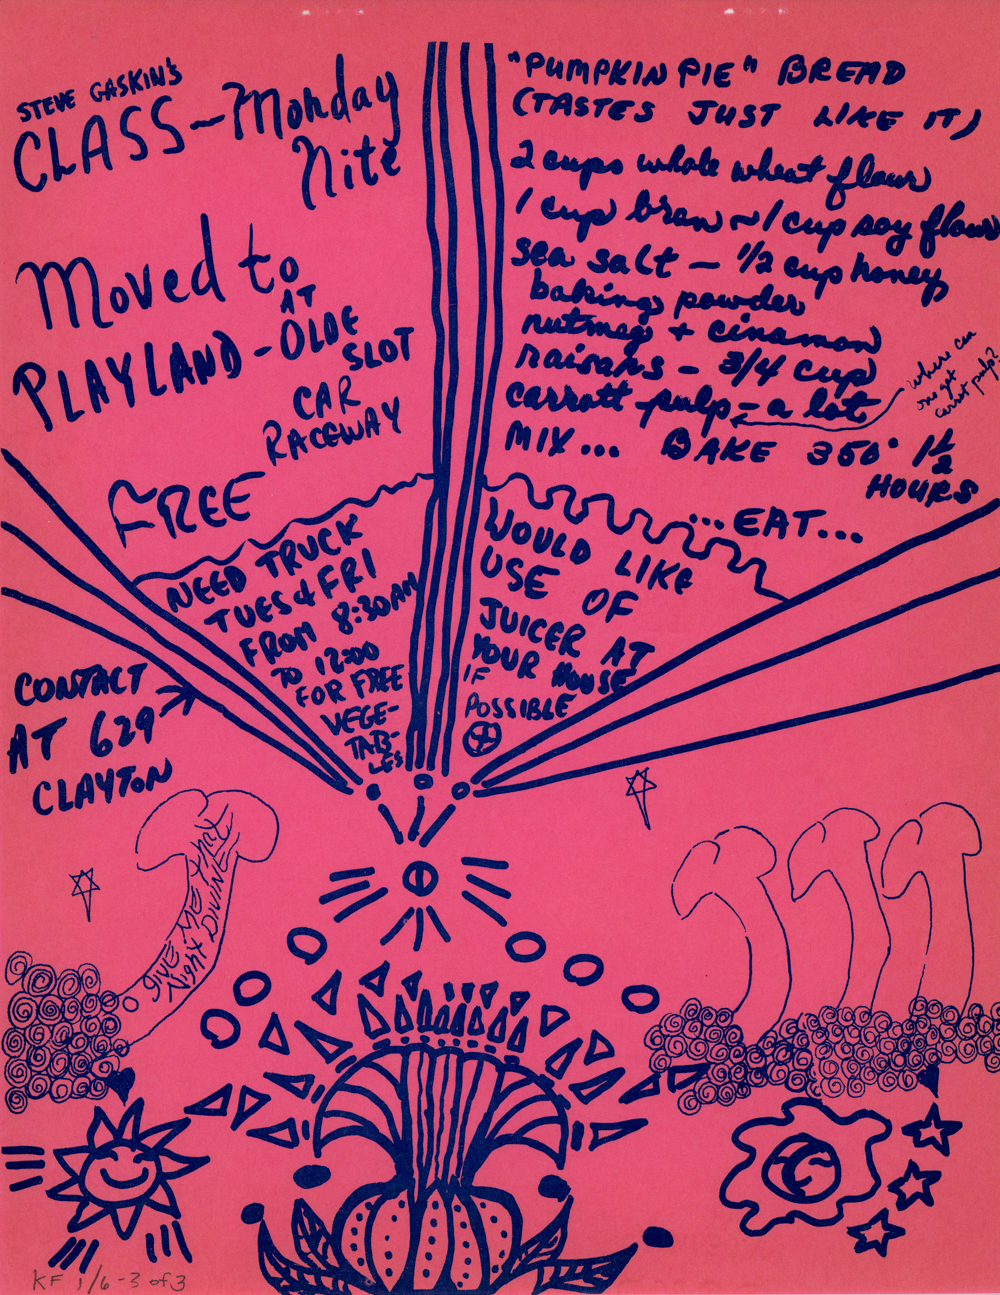 STEVE GASKIN'S
CLASS - Monday
Nite
Moved to
AT
PLAYLAND - OLDE
SLOT
CAR
RACEWAY
FREE
"PUMPKIN PIE" BREAD
(TASTES JUST LIKE IT)
2 cups whole wheat flour
1 cup bran ~ 1 cup soy flour
sea salt - 1/2 cup honey
baking powder
nutmeg + cinamon
raisans - 3/4 cup
carrott pulp - a lot
where can
one get
carrot pulp?
MIX... BAKE 350° 1 1/2
HOURS
...EAT...
NEED TRUCK
TUES & FRI
FROM 8:30AM
TO 12:00
FOR FREE
VEGE-
TAB-
LES
WOULD LIKE
USE OF
JUICER AT
YOUR HOUSE
IF
POSSIBLE
CONTACT
AT 629
CLAYTON
DIVINE
KF 1/6 - 3 of 3